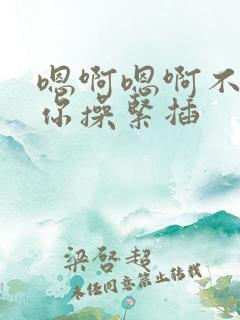 嗯啊嗯啊不
你操紧插
梁启超
未经同意禁止转载